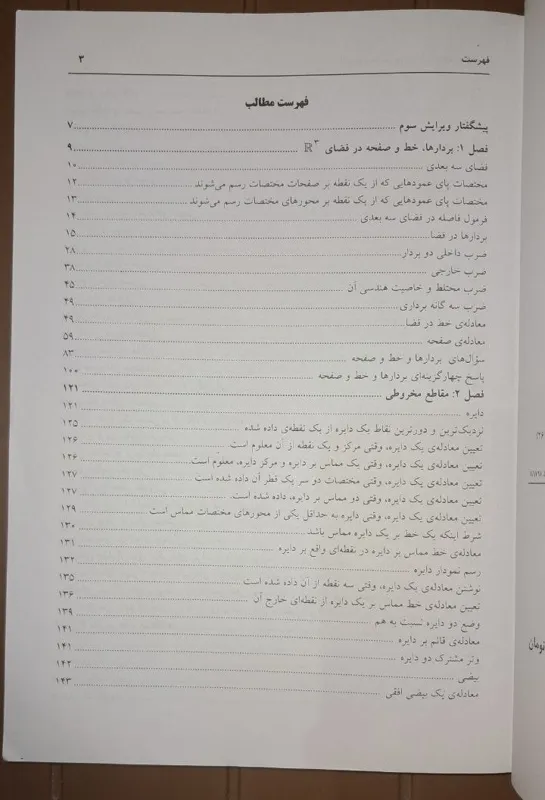 فهرست ۳
فهرست مطالب
پیشگفتار ویرایش سوم ۷
فصل ۱: بردارها، خط و صفحه در فضای ℝ³ ۹
فضای سه بعدی ۱۰
مختصات پای عمودهایی که از یک نقطه بر صفحات مختصات رسم می‌شوند ۱۲
مختصات پای عمودهایی که از یک نقطه بر محورهای مختصات رسم می‌شوند ۱۳
فرمول فاصله در فضای سه بعدی ۱۴
بردارها در فضا ۱۵
ضرب داخلی دو بردار ۲۸
ضرب خارجی ۳۸
ضرب مختلط و خاصیت هندسی آن ۴۵
ضرب سه گانه برداری ۴۹
معادله‌ی خط در فضا ۴۹
معادله‌ی صفحه ۵۹
سؤال‌های بردارها و خط و صفحه ۸۳
پاسخ چهارگزینه‌ای بردارها و خط و صفحه ۱۰۰
فصل ۲: مقاطع مخروطی ۱۲۱
دایره ۱۲۱
نزدیک‌ترین و دورترین نقاط یک دایره از یک نقطه‌ی داده شده ۱۲۵
تعیین معادله‌ی یک دایره، وقتی مرکز و یک نقطه از آن معلوم است ۱۲۶
تعیین معادله‌ی یک دایره، وقتی یک مماس بر دایره و مرکز دایره، معلوم است. ۱۲۶
تعیین معادله‌ی یک دایره، وقتی مختصات دو سر یک قطر آن داده شده است ۱۲۷
تعیین معادله‌ی یک دایره، وقتی دو مماس بر دایره، داده شده است. ۱۲۷
تعیین معادله‌ی یک دایره، وقتی دایره به حداقل یکی از محورهای مختصات مماس است ۱۲۹
شرط اینکه یک خط بر یک دایره مماس باشد ۱۳۰
معادله‌ی خط مماس بر دایره در نقطه‌ای واقع بر دایره ۱۳۱
رسم نمودار دایره ۱۳۲
نوشتن معادله‌ی یک دایره، وقتی سه نقطه از آن داده شده است ۱۳۵
تعیین معادله‌ی خط مماس بر یک دایره از نقطه‌ای خارج آن ۱۳۶
وضع دو دایره نسبت به هم ۱۳۹
معادله‌ی قائم بر دایره ۱۴۱
وتر مشترک دو دایره ۱۴۱
بیضی ۱۴۲
معادله‌ی یک بیضی افقی ۱۴۳
تومان